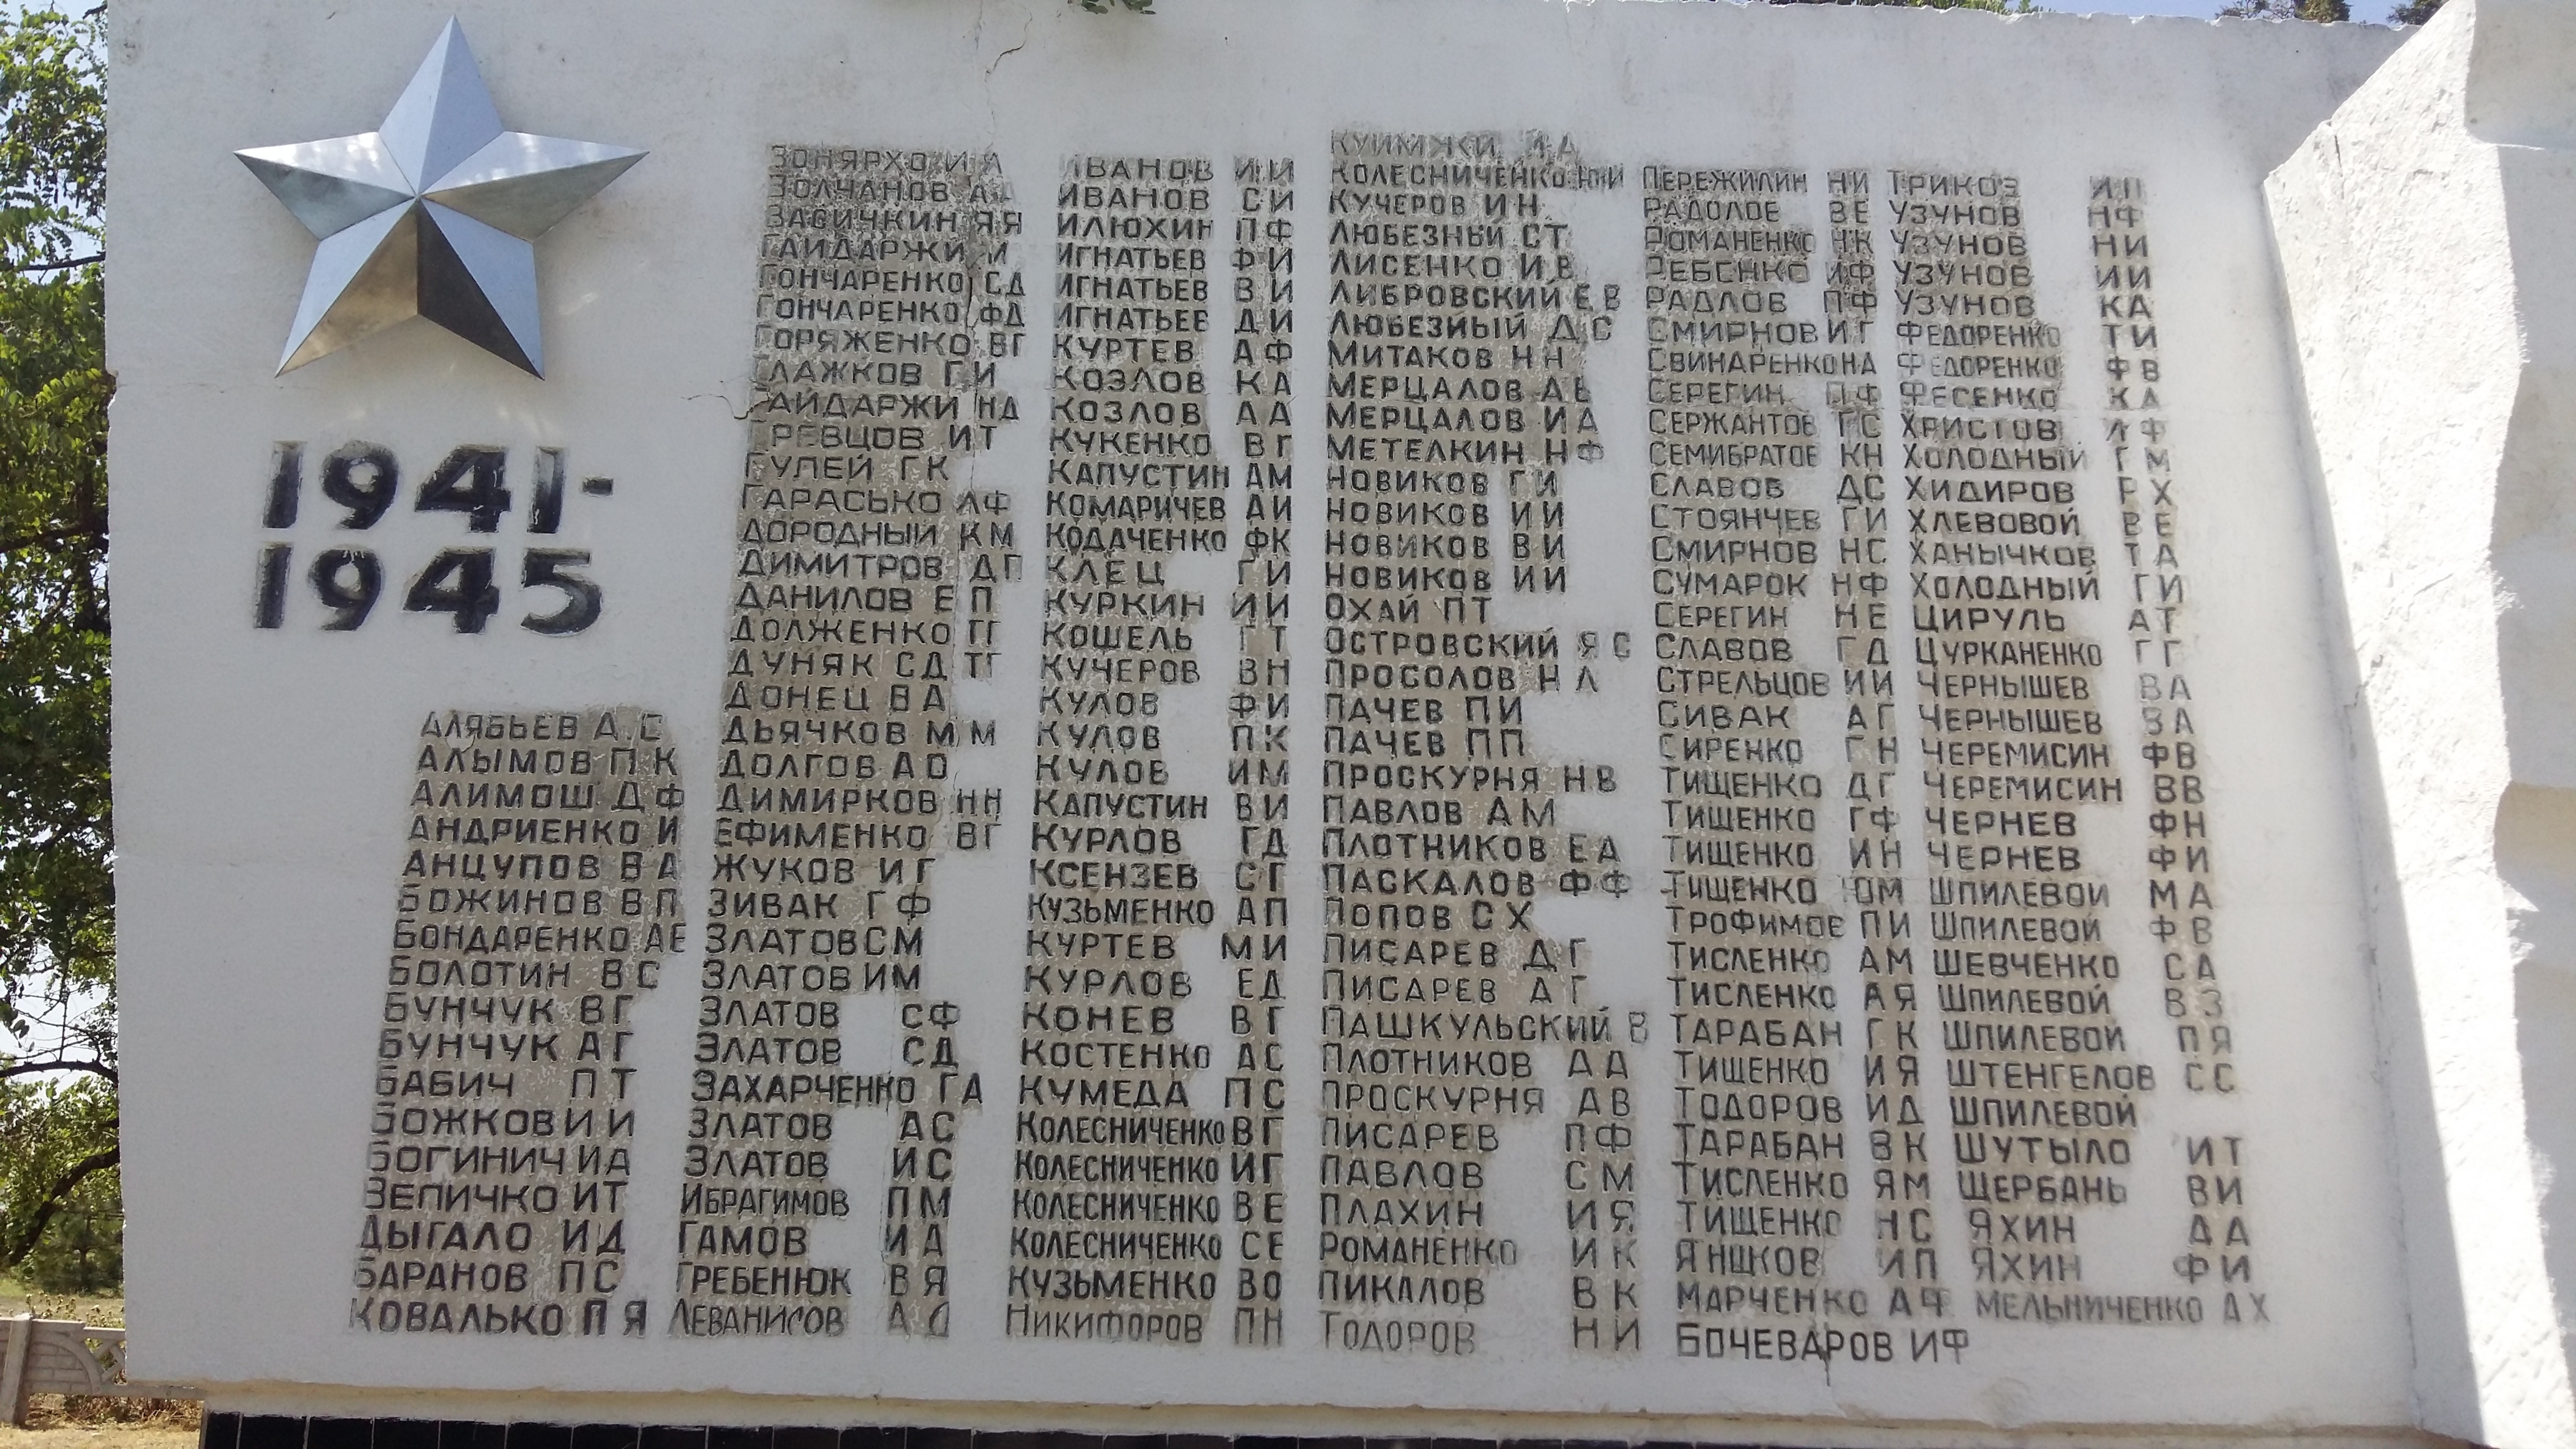 1941-
1945
АЛЯБЬЕВ А.С
АЛЫМОВ П К
АЛИМОШ Д Ф
АНДРИЕНКО И
АНЦУПОВ В А
БОЖИНОВ В П
БОНДАРЕНКО АЕ
БОЛОТИН ВС
БУНЧУК ВГ
БУНЧУК АГ
БАБИЧ ПТ
БОЖКОВ И И
БОГИНИЧ ИА
ЗЕПИЧКО ИТ
ДЫГАЛО ИД
БАРАНОВ ПС
КОВАЛЬКО П Я
ЗОНЯРХО И А
ЗОЛЧАНОВ А
ЗАСИЧКИН ЯЯ
ГАЙДАРЖИ И
ГОНЧАРЕНКО СД
ГОНЧАРЕНКО ФД
ГОРЯЖЕНКО ВГ
ГЛАЖКОВ ГИ
ГАЙДАРЖИ НД
ГРЕВЦОВ ИТ
ГУЛЕЙ ГК
ГАРАСЬКО ЛФ
ДОРОДНЫЙ КМ
ДИМИТРОВ ДП
ДАНИЛОВ Е П
ДОЛЖЕНКО ГГ
ДУНЯК СД ТГ
ДОНЕЦ В А
ДЬЯЧКОВ М М
ДОЛГОВ А О
ДИМИРКОВ НН
ЕФИМЕНКО ВГ
ЖУКОВ ИГ
ЗИВАК ГФ
ЗЛАТОВ СМ
ЗЛАТОВ ИМ
ЗЛАТОВ СФ
ЗЛАТОВ СД
ЗАХАРЧЕНКО ГА
ЗЛАТОВ АС
ЗЛАТОВ ИС
ИБРАГИМОВ ПМ
ГАМОВ ИА
ГРЕБЕНЮК ВЯ
ЛЕВАНИСОВ АД
ИВАНОВ ИИ
ИВАНОВ СИ
ИЛЮХИН ПФ
ИГНАТЬЕВ ФИ
ИГНАТЬЕВ ВИ
ИГНАТЬЕВ ДИ
КУРТЕВ АФ
КОЗЛОВ КА
КОЗЛОВ АА
КУКЕНКО ВГ
КАПУСТИН АМ
КОМАРИЧЕВ АИ
КОДАЧЕНКО ФК
КЛЕЦ ГИ
КУРКИН ИИ
КОШЕЛЬ ГТ
КУЧЕРОВ ВН
КУЛОВ ФИ
КУЛОВ ПК
КУЛОВ ИМ
КАПУСТИН ВИ
КУРЛОВ ГД
КСЕНЗЕВ СГ
КУЗЬМЕНКО АП
КУРТЕВ МИ
КУРЛОВ ЕД
КОНЕВ ВГ
КОСТЕНКО АС
КУМЕДА ПС
КОЛЕСНИЧЕНКО ВГ
КОЛЕСНИЧЕНКО ИГ
КОЛЕСНИЧЕНКО ВЕ
КОЛЕСНИЧЕНКО СЕ
КУЗЬМЕНКО ВО
НИКИФОРОВ ПН
КОЛЕСНИЧЕНКО
КУЧЕРОВ ИН
ЛЮБЕЗНЫЙ СТ
ЛИСЕНКО ИВ
ЛИБРОВСКИЙ ЕВ
ЛЮБЕЗНЫЙ ДС
МИТАКОВ НН
МЕРЦАЛОВ АВ
МЕРЦАЛОВ ИА
МЕТЕЛКИН НФ
НОВИКОВ ГИ
НОВИКОВ ИИ
НОВИКОВ ВИ
НОВИКОВ ИИ
ОХАЙ ПТ
ОСТРОВСКИЙ ЯС
ПРОСОЛОВ НЛ
ПАЧЕВ ПИ
ПАЧЕВ ПП
ПРОСКУРНЯ НВ
ПАВЛОВ АМ
ПЛОТНИКОВ ЕА
ПАСКАЛОВ ФФ
ПОПОВ СХ
ПИСАРЕВ ДГ
ПИСАРЕВ АГ
ПАШКУЛЬСКИЙ В
ПЛОТНИКОВ АА
ПРОСКУРНЯ АВ
ПИСАРЕВ ПФ
ПАВЛОВ СМ
ПЛАХИН ИЯ
РОМАНЕНКО ИК
ПИКАЛОВ ВК
ТОДОРОВ НИ
ПЕРЕЖИЛИН НИ
РАДОЛОВ ВЕ
РОМАНЕНКО НК
РЕБЕНКО ИФ
РАДЛОВ ПФ
СМИРНОВ ИГ
СВИНАРЕНКО НА
СЕРЕГИН ПФ
СЕРЖАНТОВ ГС
СЕМИБРАТОВ КН
СЛАВОВ ДС
СТОЯНЧЕВ ГИ
СМИРНОВ НС
СУМАРОК НФ
СЕРЕГИН НЕ
СЛАВОВ ГД
СТРЕЛЬЦОВ ИИ
СИВАК АГ
СИРЕНКО ГН
ТИЩЕНКО ДГ
ТИЩЕНКО ГФ
ТИЩЕНКО ИН
ТИЩЕНКО ЮМ
ТРОФИМОВ ПИ
ТИСЛЕНКО АМ
ТИСЛЕНКО АЯ
ТАРАБАН ГК
ТИЩЕНКО ИЯ
ТОДОРОВ ИД
ТАРАБАН ВК
ТИСЛЕНКО ЯМ
ТИЩЕНКО НС
ЯНШКОВ ИП
МАРЧЕНКО АФ
БОЧЕВАРОВ ИФ
ТРИКОЗ ИП
УЗУНОВ НФ
УЗУНОВ НИ
УЗУНОВ ИИ
УЗУНОВ КА
ФЕДОРЕНКО ТИ
ФЕДОРЕНКО ФВ
ФЕСЕНКО КА
ХРИСТОВ ЛФ
ХОЛОДНЫЙ ГМ
ХИДИРОВ РХ
ХЛЕВОВОЙ ВЕ
ХАНЫЧКОВ ТА
ХОЛОДНЫЙ ГИ
ЦИРУЛЬ АТ
ЦУРКАНЕНКО ГГ
ЧЕРНЫШЕВ ВА
ЧЕРНЫШЕВ ВА
ЧЕРЕМИСИН ФВ
ЧЕРЕМИСИН ВВ
ЧЕРНЕВ ФН
ЧЕРНЕВ ФИ
ШПИЛЕВОЙ МА
ШПИЛЕВОЙ ФВ
ШЕВЧЕНКО СА
ШПИЛЕВОЙ ВЗ
ШПИЛЕВОЙ ПЯ
ШТЕНГЕЛОВ СС
ШПИЛЕВОЙ
ШУТЫЛО ИТ
ЩЕРБАНЬ ВИ
ЯХИН ДА
ЯХИН ФИ
МЕЛЬНИЧЕНКО АХ